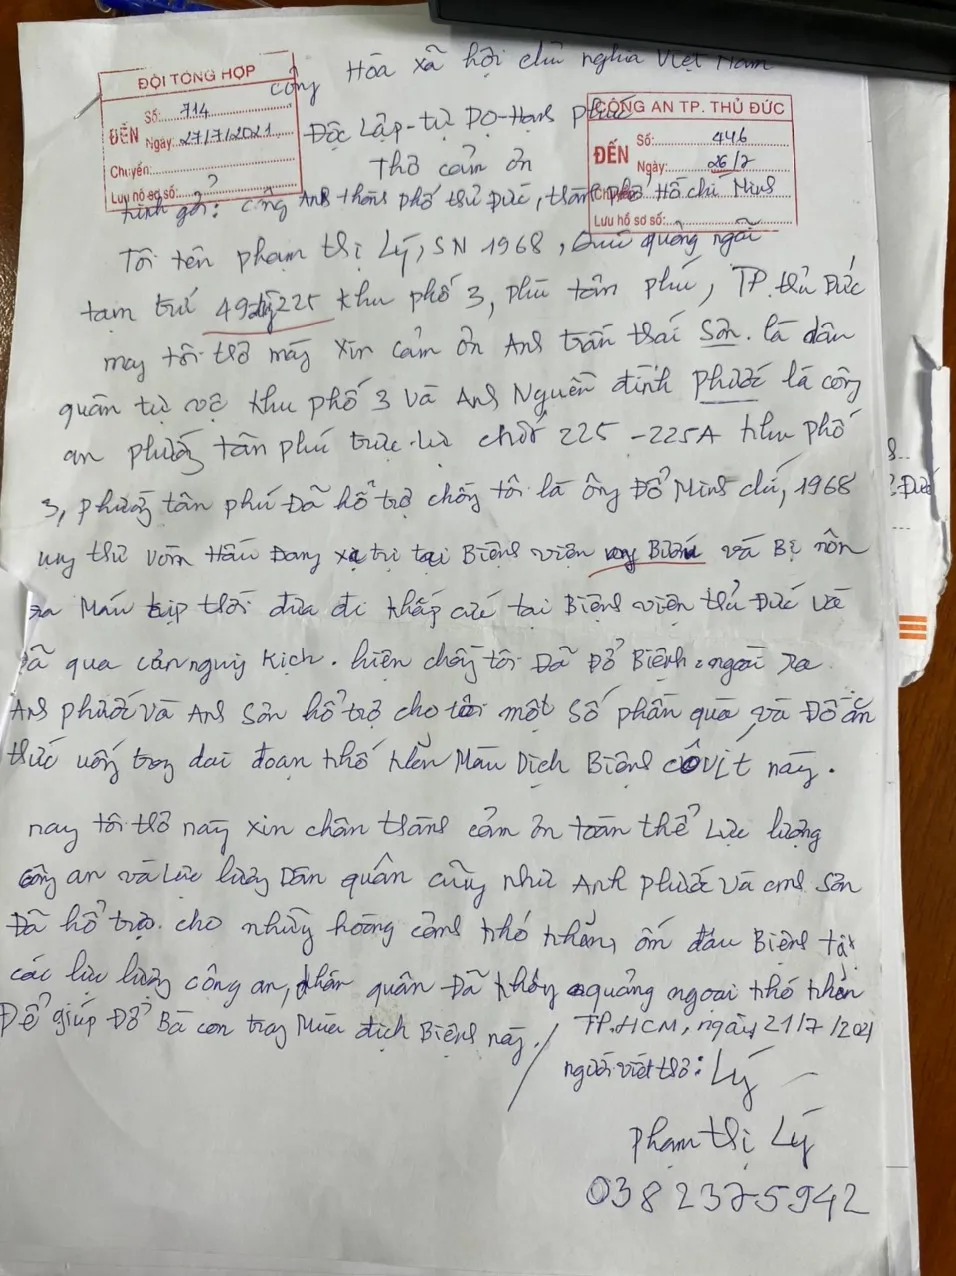 ĐỘI TỔNG HỢP
ĐẾN
Số: 714
Ngày: 27/7/2021
Chuyển:
Lưu hồ sơ số: ?
CÔNG AN TP. THỦ ĐỨC
ĐẾN
Số: 446
Ngày: 26/7
Lưu hồ sơ số:
Cộng Hòa xã hội chủ nghĩa Việt Nam
Độc Lập - tự Do - Hạnh phúc
Thơ cảm ơn
kính gởi: công Anh thành phố thủ Đức, thành phố Hồ chí Minh
Tôi tên phạm thị Lý, SN 1968, quảng ngãi
tạm trú 225 khu phố 3, tân phú, TP. thủ Đức
nay tôi thơ này xin cảm ơn Anh trần thái Sơn. là dân
quân tự vệ khu phố 3 và Anh Nguễn đình phước là công
an phường tân phú trực chốt 225 - 225A khu phố
3, phường tân phú Đã hổ trợ chồng tôi là ông Đỗ Minh chí, 1968
ung thư vòm Hầu Đang xạ trị tại Biệnh viện và Bị nôn
ra Máu kịp thời đưa đi khấp cứu tại Biệnh viện thủ Đức và
Đã qua cản nguy kịch. hiện chồng tôi Đã Đở Biệnh. ngoài ra
Anh phước và Anh Sơn hổ trợ cho tôi một số phần quà và Đồ ăn
thức uống trong dai đoạn khó khăn Màu Dịch Biệnh côvit này.
nay tôi thơ này xin chân thành cảm ơn toàn thể Lực lượng
công an và Lực lượng Dân quân cũng như Anh phước và anh Sơn
Đã hổ trợ cho những hoàng cảnh khó khăn, ốm đau Biệnh tật
các lực lượng công an, quân Đã không quảng ngoại khó khăn
Để giúp Đở Bà con trong Mùa dịch Biệnh này./
TP.HCM, ngày 21/7/2021
người viết thơ: Lý
phạm thị Lý
0382375942